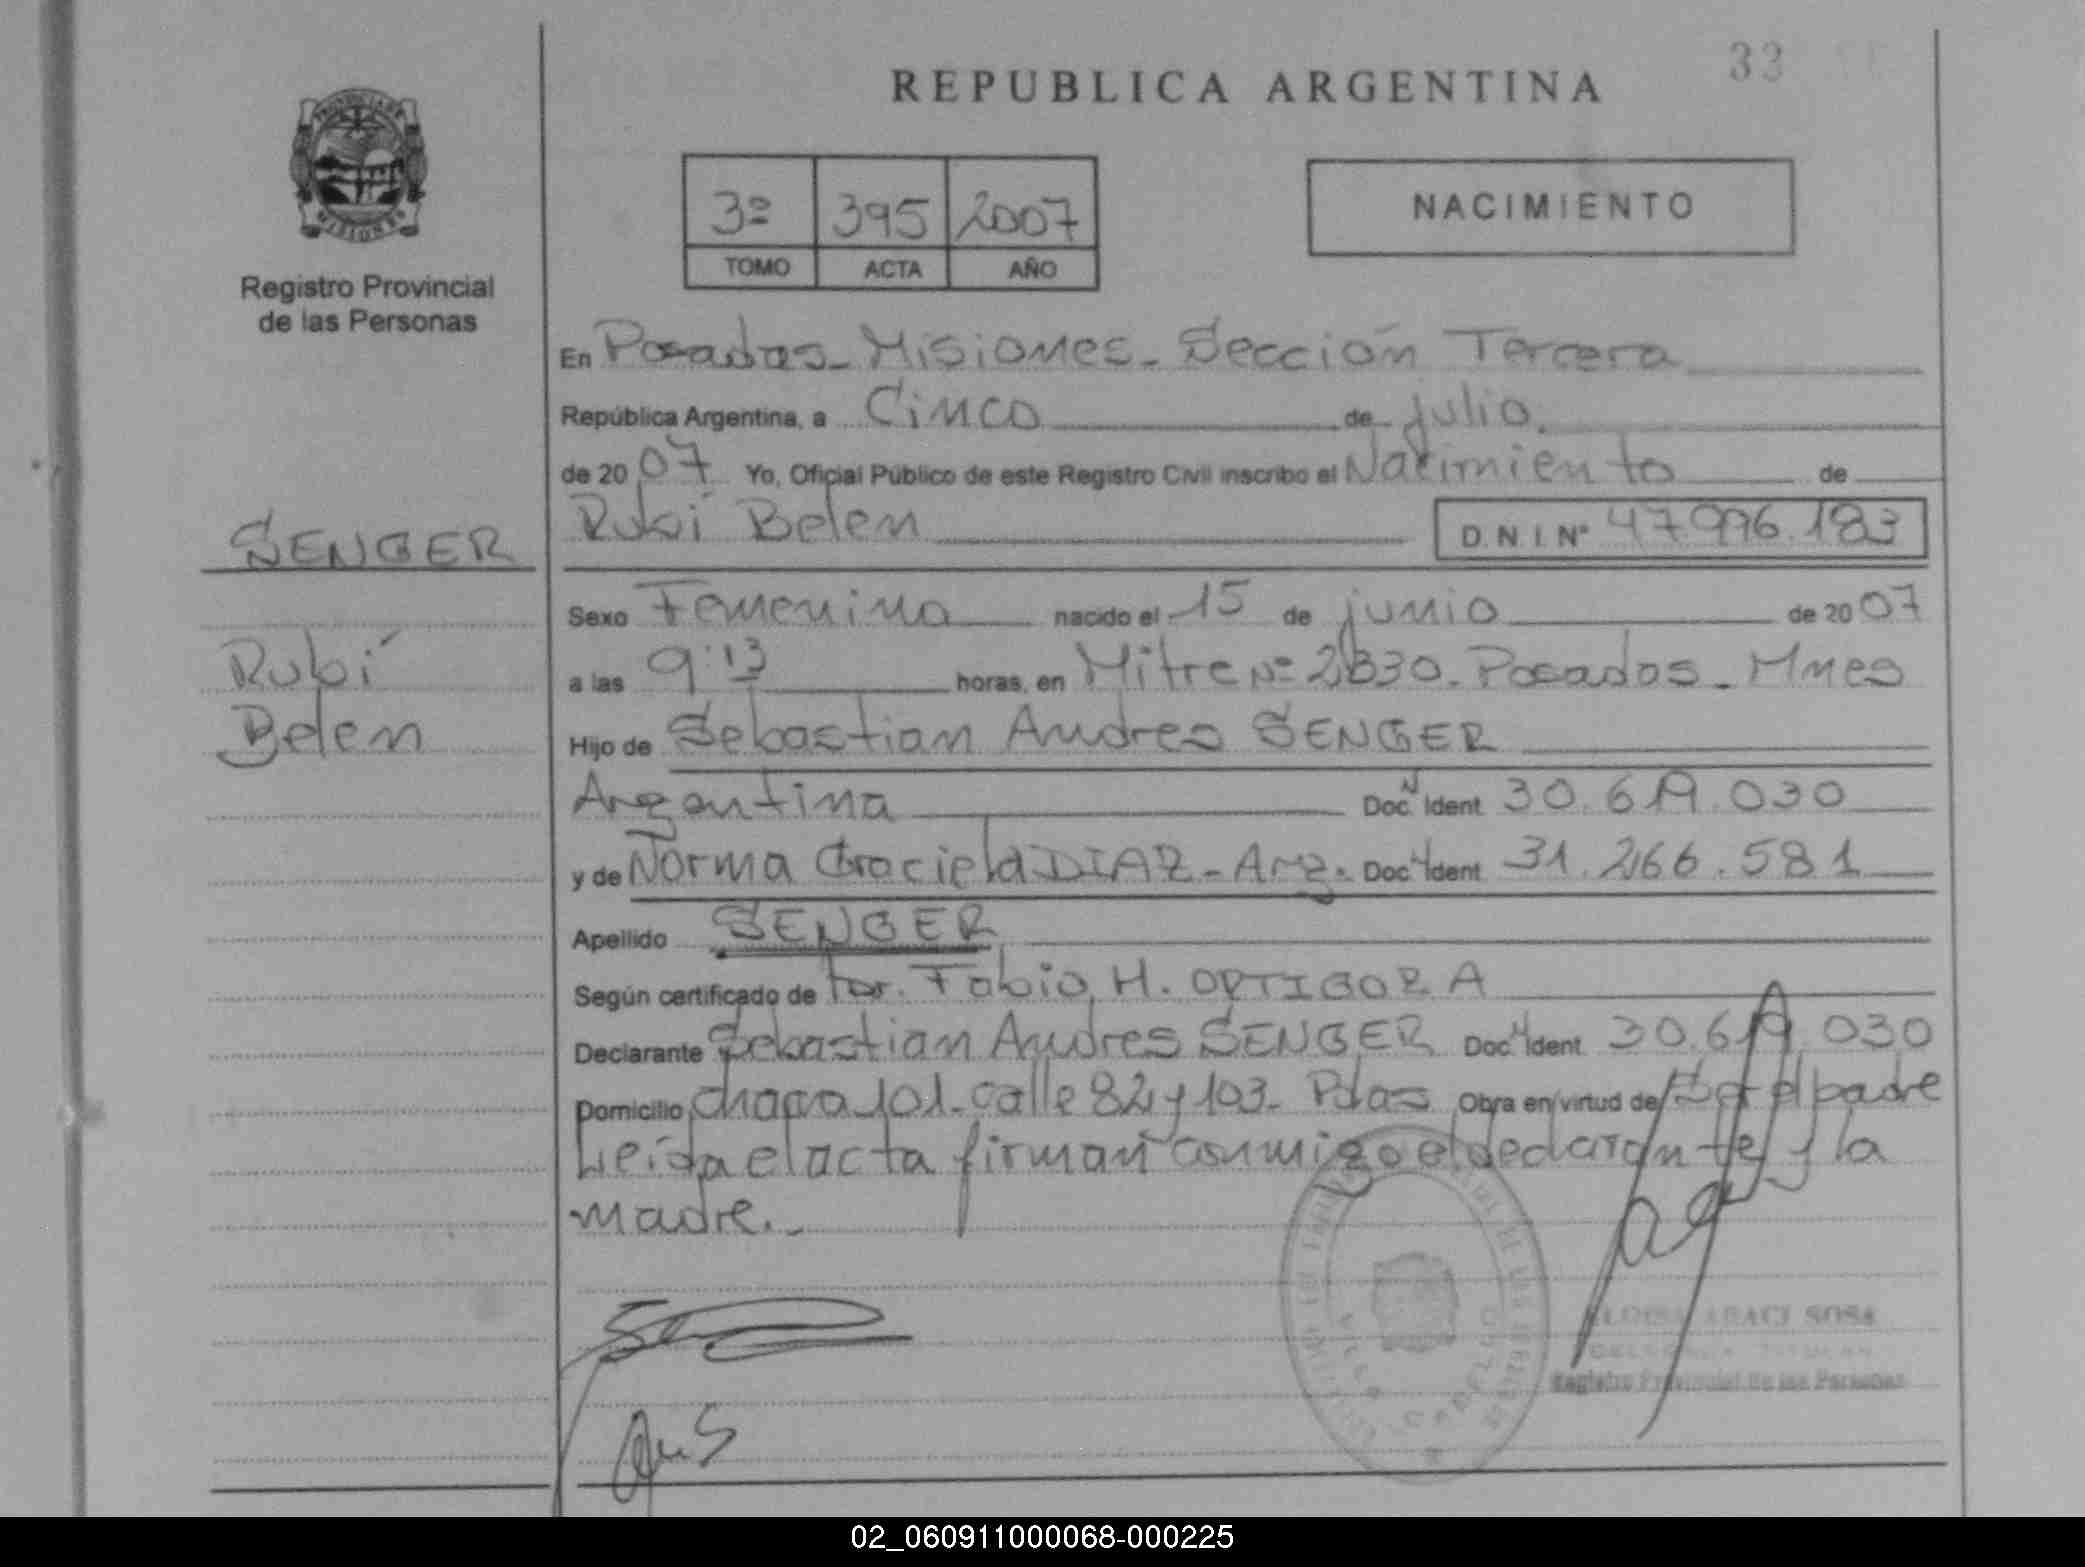 33
REPUBLICA ARGENTINA
PROVINCIA DE
MISIONES
Registro Provincial
de las Personas
3º 395 2007
TOMO ACTA AÑO
NACIMIENTO
En Posadas - Misiones - Sección Tercera
República Argentina, a Cinco de julio.
de 20 07 Yo, Oficial Público de este Registro Civil inscribo el Nacimiento de
SENGER
Rubí Belen D.N.I. Nº 47.996.183
Sexo Femenina nacido el 15 de junio de 20 07
Rubí
Belen
a las 9:13 horas, en Mitre Nº 2330. Posadas - Mnes
Hijo de Sebastian Andres SENGER
Argentina Doc N Ident 30.619.030
y de Norma Graciela DIAZ - Arg. Doc N Ident 31.266.581
Apellido SENGER
Según certificado de Fabio H. ORTIGOZA
Declarante Sebastian Andres SENGER Doc N Ident 30.619.030
Domicilio chacra 101 - calle 82 y 103 - Pdas Obra en virtud de Ser el padre
Leída el acta firman conmigo el declarante y la
madre.-
ARACI SOSA
Registro Provincial de las Personas
02_060911000068-000225